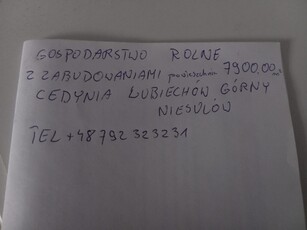 GOSPODARSTWO ROLNE
Z ZABUDOWANIAMI powierzchnia 7900,00 m²
CEDYNIA ŁUBIECHÓW GÓRNY
NIESUŁÓW
TEL +48 792 323231